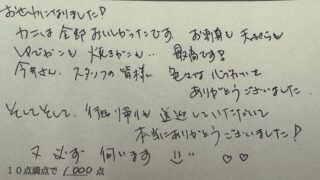 おせわになりました!
カニは全部おいしかったです お刺身も 天ぷらも
ゆでガニも 焼きガニも… 最高です!
今井さん、スタッフの皆様 色々な 心づかいを
ありがとうございました。
そしてそして、行きも帰りも 送迎していただいて
本当にありがとうございました!
又 必ず 伺います
10点満点で 1000 点